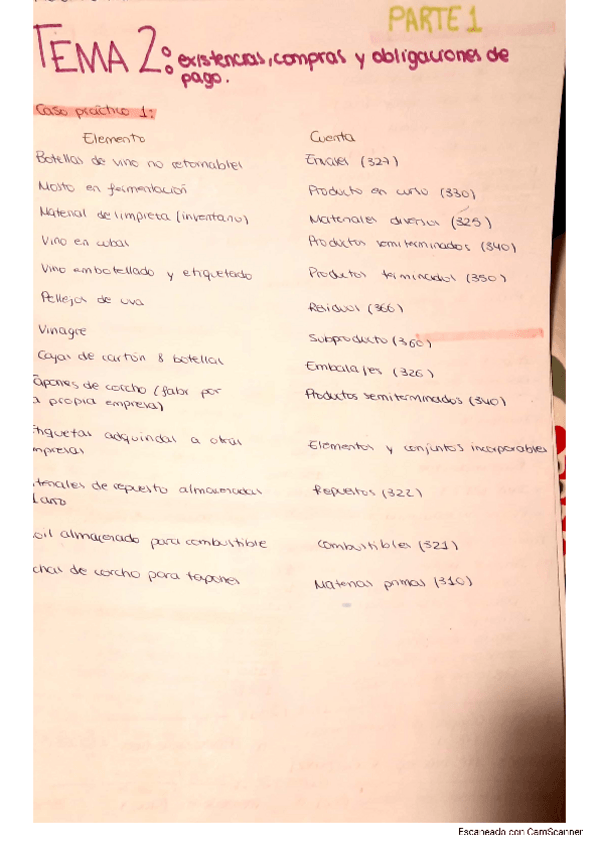 PARTE 1
TEMA 2: existencias, compras y obligaciones de
pago.
Caso práctico 1:
Elemento Cuenta
Botellas de vino no retornables Envases (327)
Mosto en fermentación Producto en curso (330)
Material de limpieza (inventario) Materiales diversos (325)
Vino en cubas Productos semiterminados (340)
Vino embotellado y etiquetado Productos terminados (350)
Pellejos de uva Residuos (366)
Vinagre Subproducto (360)
Cajas de cartón 8 botellas Embalajes (326)
apones de corcho (fabr por Productos semiterminados (340)
a propia empresa)
tiquetas adquiridas a otras Elementos y conjuntos incorporables
mpresas
teriales de repuesto almacenadas Repuestos (322)
1 año
oil almacenado para combustible Combustibles (321)
chas de corcho para tapones Materias primas (310)
Escaneado con CamScanner